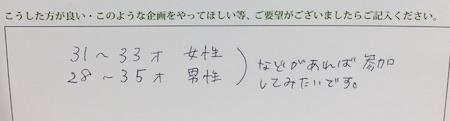 こうした方が良い・このような企画をやってほしい等、ご要望がございましたらご記入ください。
31～33才 女性
28～35才 男性
などがあれば参加
してみたいです。